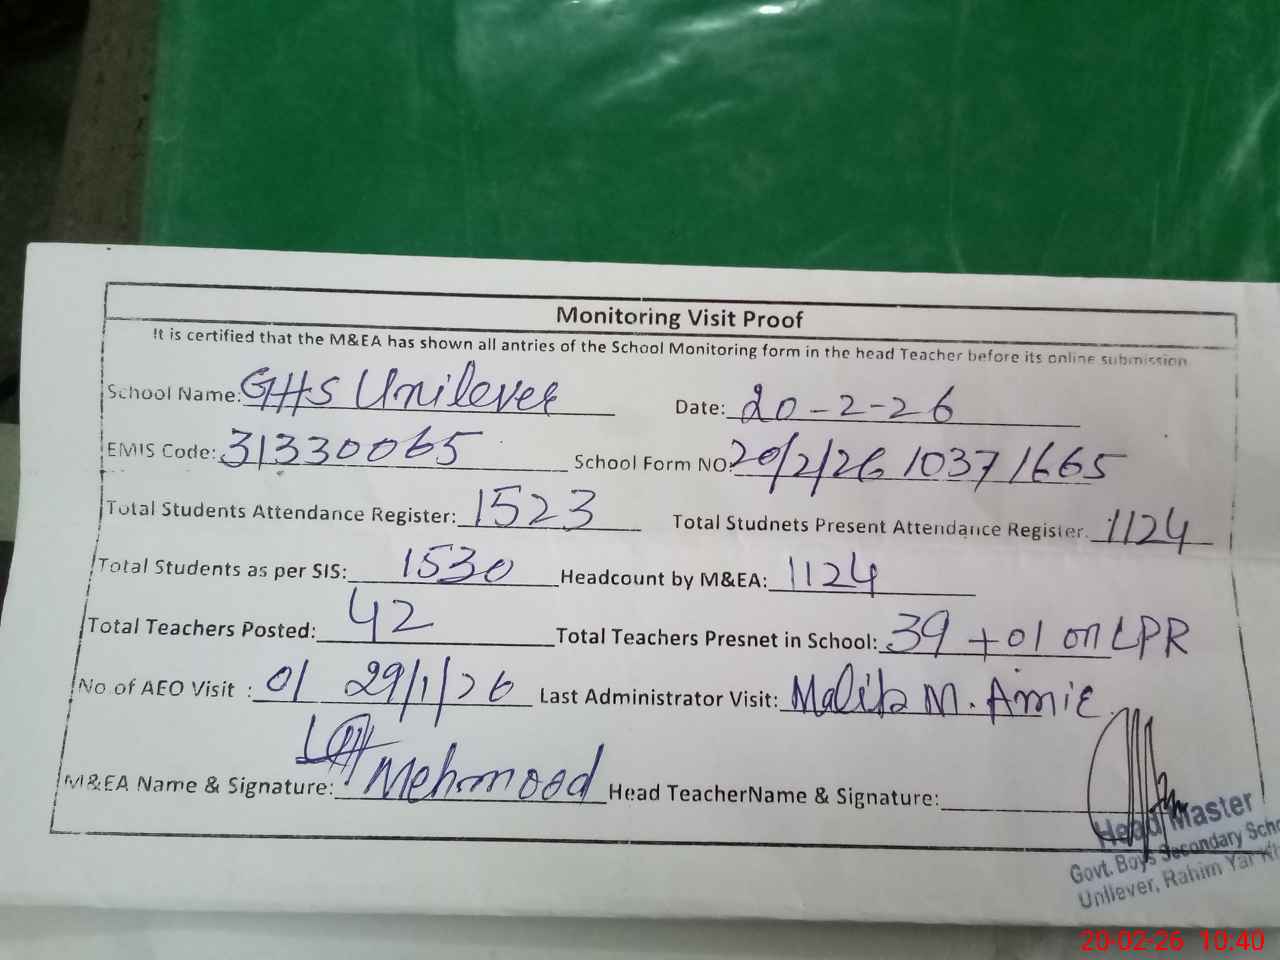 Monitoring Visit Proof
It is certified that the M&EA has shown all antries of the School Monitoring form in the head Teacher before its online submission
School Name: GHS Unilever Date: 20-2-26
EMIS Code: 31330065 School Form NO: 20/2/26 1037 1665
Total Students Attendance Register: 1523 Total Studnets Present Attendance Register. 1124
Total Students as per SIS: 1530 Headcount by M&EA: 1124
Total Teachers Posted: 42 Total Teachers Presnet in School: 39 + 01 on LPR
No of AEO Visit : 01 29/1/26 Last Administrator Visit: M.
M&EA Name & Signature: Mehmood Head TeacherName & Signature:
Head Master
Govt. Boys Secondary
Unliever, Rahim Yar
20-02-26 10:40